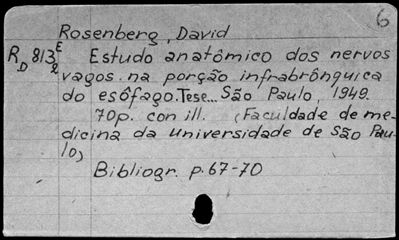 6
Rosenberg, David
R D 813 E e Estudo anatômico dos nervos
vagos na porção infrabrônquica
do esôfago. Tese... São Paulo, 1949.
70p. con ill. (Faculdade de me-
dicina da Universidade de São Pau-
lo)
Bibliogr. p. 67-70